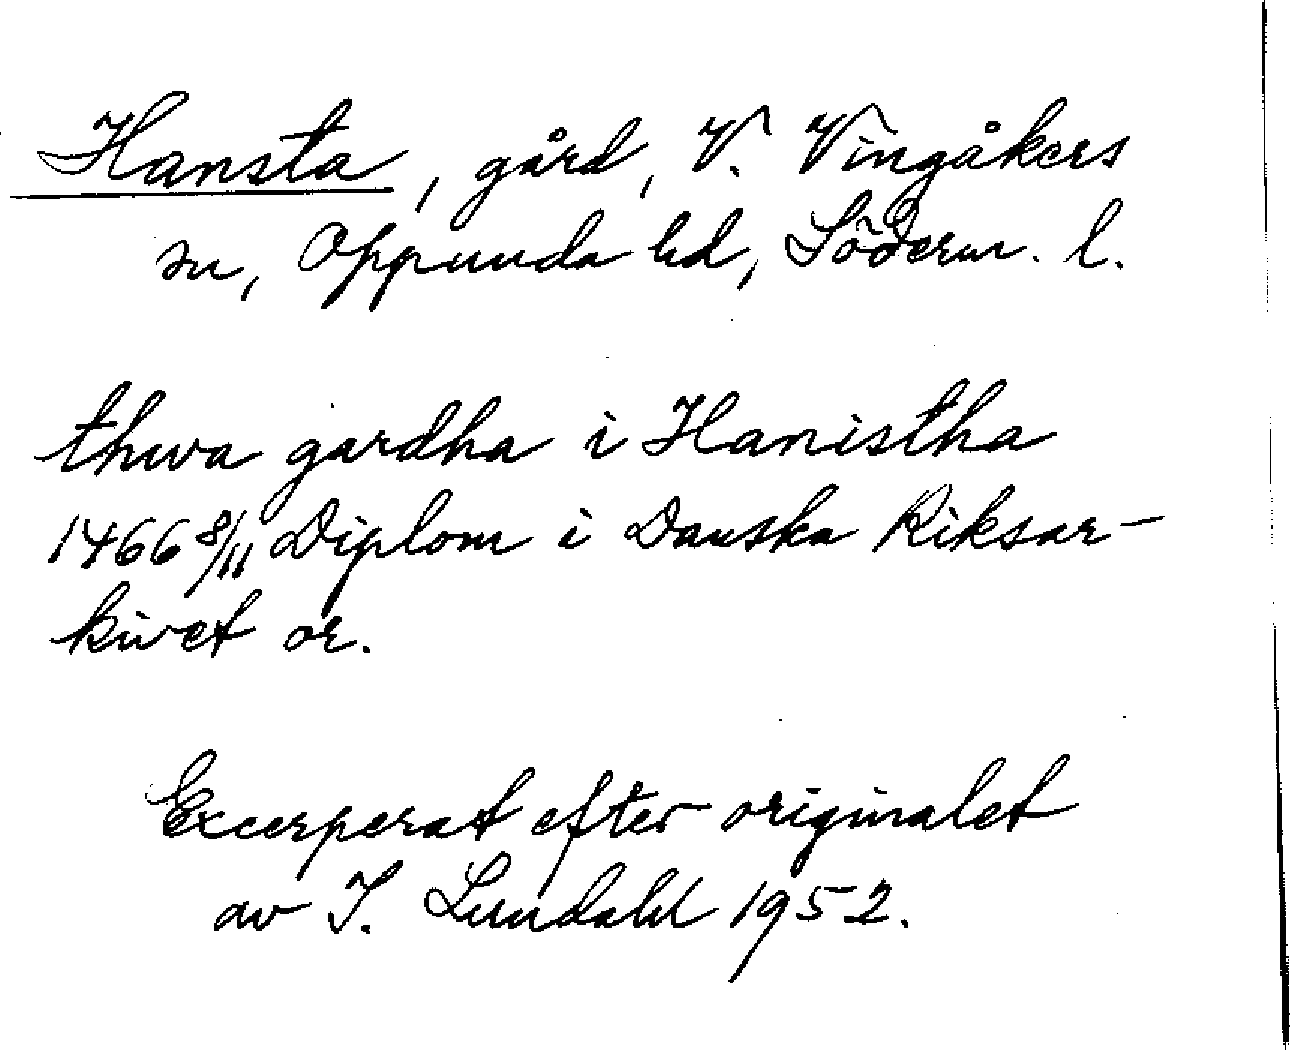 Hansta, gård, V. Vingåkers
sn, Oppunda hd, Söderm. l.
thwa gardha i Hanistha
1466 8/11 Diplom i Danska Riksar-
kivet or.
Excerperat efter originalet
av I. Lundahl 1952.